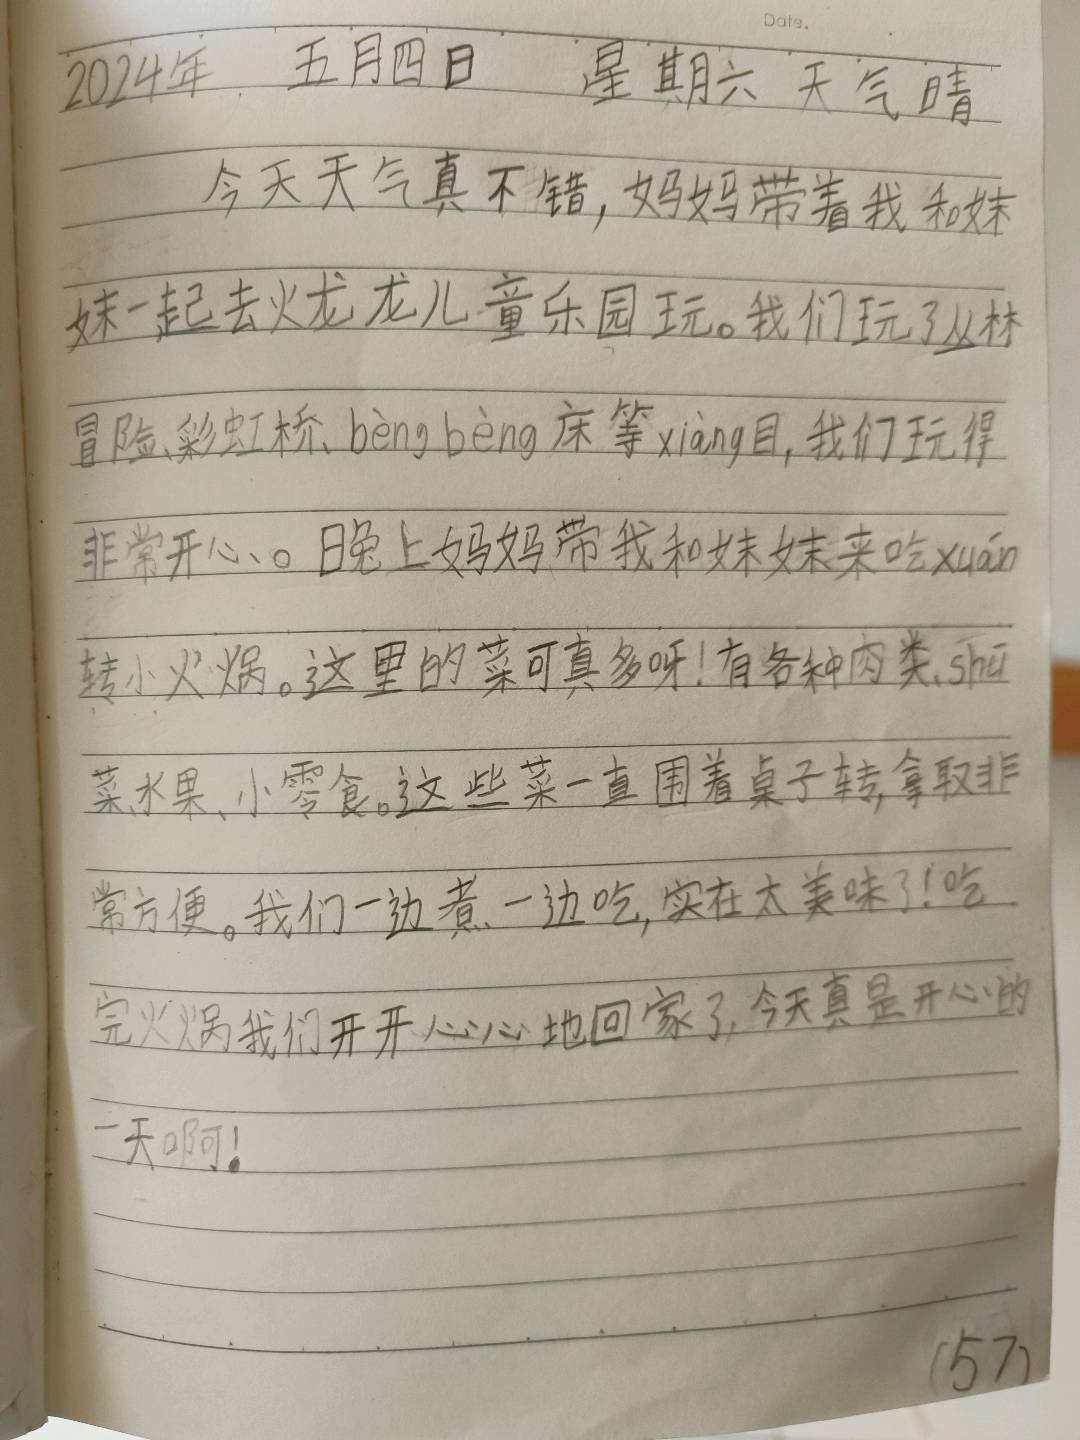 Date.
2024年 五月四日 星期六 天气晴
今天天气真不错,妈妈带着我和妹
妹一起去火龙龙儿童乐园玩。我们玩了丛林
冒险、彩虹桥、bèng bèng床等xiàng目,我们玩得
非常开心。晚上妈妈带我和妹妹来吃xuán
转小火锅。这里的菜可真多呀!有各种肉类、shū
菜、水果、小零食。这些菜一直围着桌子转,拿取非
常方便。我们一边煮、一边吃,实在太美味了!吃
完火锅我们开开心心地回家了,今天真是开心的
一天啊!
(57)